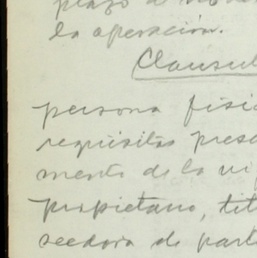 plazo de
la operación.
Clausul
persona físi
requisitos pres
mento de la vi
propietario, tit
seedora de part